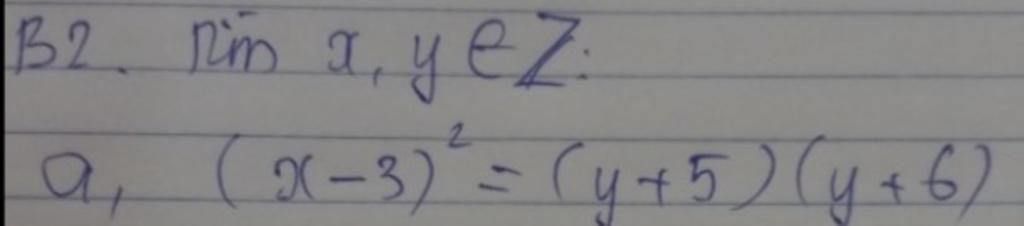 B2. Tìm x, y ∈ Z:
a, (x-3)² = (y+5)(y+6)